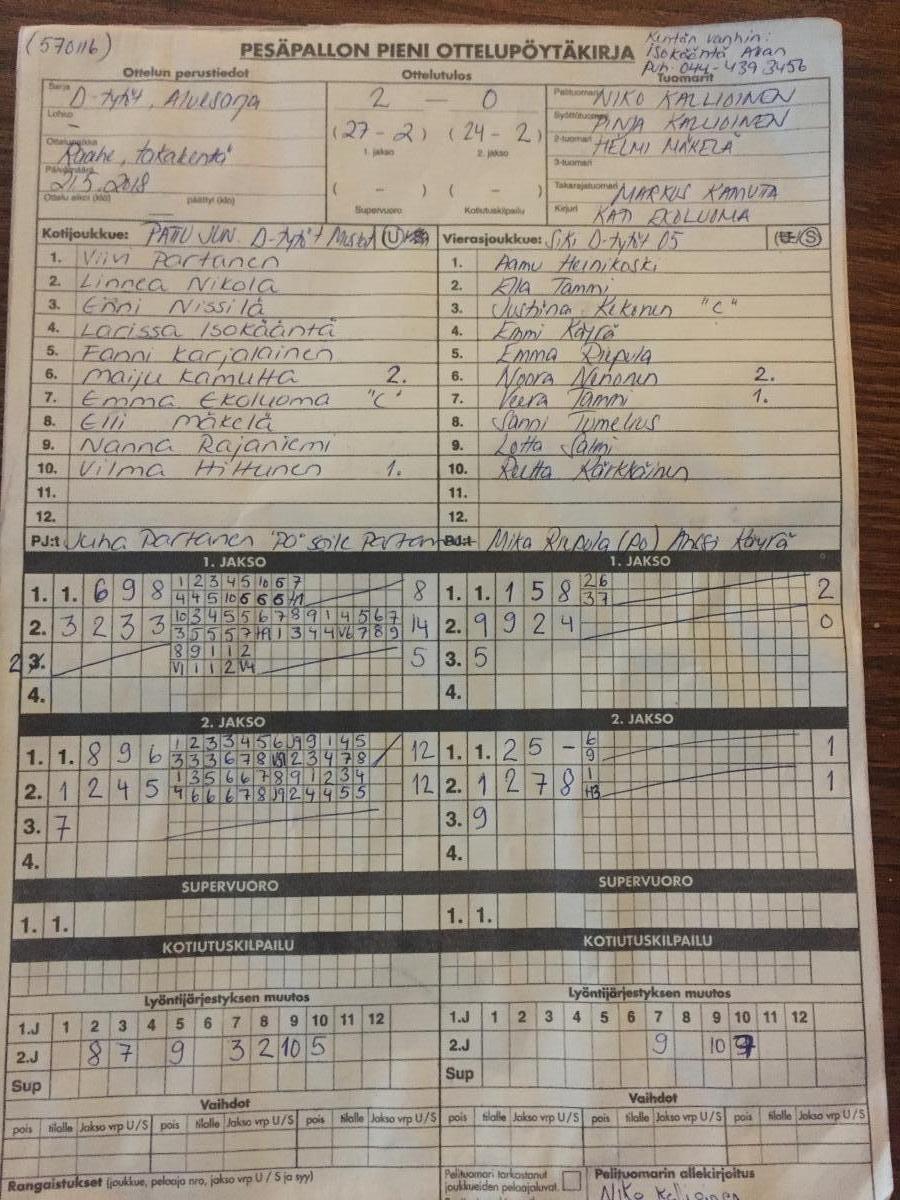 (570116)
PESÄPALLON PIENI OTTELUPÖYTÄKIRJA
Kentän vanhin:
Isokääntä Allan
Puh. 044-439 3456
Ottelun perustiedot
Ottelutulos
Tuomarit
Sarja D-tytöt, Aluesarja
Lohko -
Ottelupaikka Raahe, takakenttä
Päivämäärä 21.5.2018
Ottelu alkoi (klo) päättyi (klo)
2 – 0
(27 - 2) (24 - 2)
1. jakso 2. jakso
( - ) ( - )
Supervuoro Kotiutuskilpailu
Pelituomari NIKO KALLIOINEN
Syöttötuomari PINJA KALLIOINEN
2-tuomari HELMI MÄKELÄ
3-tuomari
Takarajatuomari MARKUS KAMUTA
Kirjuri KATI EKOLUOMA
Kotijoukkue: PATTU JUN. D-tytöt Mustat U
1. Viivi Partanen
2. Linnea Nikola
3. Enni Nissilä
4. Larissa Isokääntä
5. Fanni Karjalainen
6. Maiju Kamutta 2.
7. Emma Ekoluoma "C"
8. Elli Mäkelä
9. Nanna Rajaniemi
10. Vilma Hiltunen 1.
11.
12.
PJ:t Juha Partanen "PO" Soile Partanen
Vierasjoukkue: SiKi D-tytöt 05 S
1. Aamu Heinikoski
2. Ella Tammi
3. Justiina Kekonen "C"
4. Emmi Käyrä
5. Emma Riepula
6. Noora Ninonen 2.
7. Veera Tammi 1.
8. Sanni Tumelius
9. Lotta Salmi
10. Reetta Kärkkäinen
11.
12.
PJ:t Mika Riepula (PO) Anssi Käyrä
1. JAKSO
1. 1. 6 9 8 1 2 3 4 5 10 6 7 8
4 4 5 10 6 6 6 H1
2. 3 2 3 3 10 3 4 5 5 6 7 8 9 1 4 5 6 7 14
3 5 5 5 7 H9 1 3 4 4 V6 7 8 9
2. 8 9 1 1 2 5
V1 1 1 2 V4
4.
1. JAKSO
1. 1. 1 5 8 2 6 2
3 7
2. 9 9 2 4 0
3. 5
4.
2. JAKSO
1. 1. 8 9 6 1 2 3 3 4 5 6 9 9 1 4 5 12
3 3 3 6 7 8 2 3 4 7 8
2. 1 2 4 5 1 3 5 6 6 7 8 9 1 2 3 4 12
4 6 6 6 7 8 9 2 4 4 5 5
3. 7
4.
2. JAKSO
1. 1. 2 5 - 6 1
9
2. 1 2 7 8 1 1
H3
3. 9
4.
SUPERVUORO
1. 1.
SUPERVUORO
1. 1.
KOTIUTUSKILPAILU
KOTIUTUSKILPAILU
Lyöntijärjestyksen muutos
1.J 1 2 3 4 5 6 7 8 9 10 11 12
2.J 8 7 9 3 2 10 5
Sup
Lyöntijärjestyksen muutos
1.J 1 2 3 4 5 6 7 8 9 10 11 12
2.J 9 10 7
Sup
Vaihdot
pois tilalle Jakso vrp U/S pois tilalle Jakso vrp U/S pois tilalle Jakso vrp U/S
Vaihdot
pois tilalle Jakso vrp U/S pois tilalle Jakso vrp U/S pois tilalle Jakso vrp U/S
Rangaistukset (joukkue, pelaaja nro, jakso vrp U / S ja syy)
Pelituomari tarkastanut
joukkueiden pelaajaluvat.
Pelituomarin allekirjoitus
Niko Kallioinen